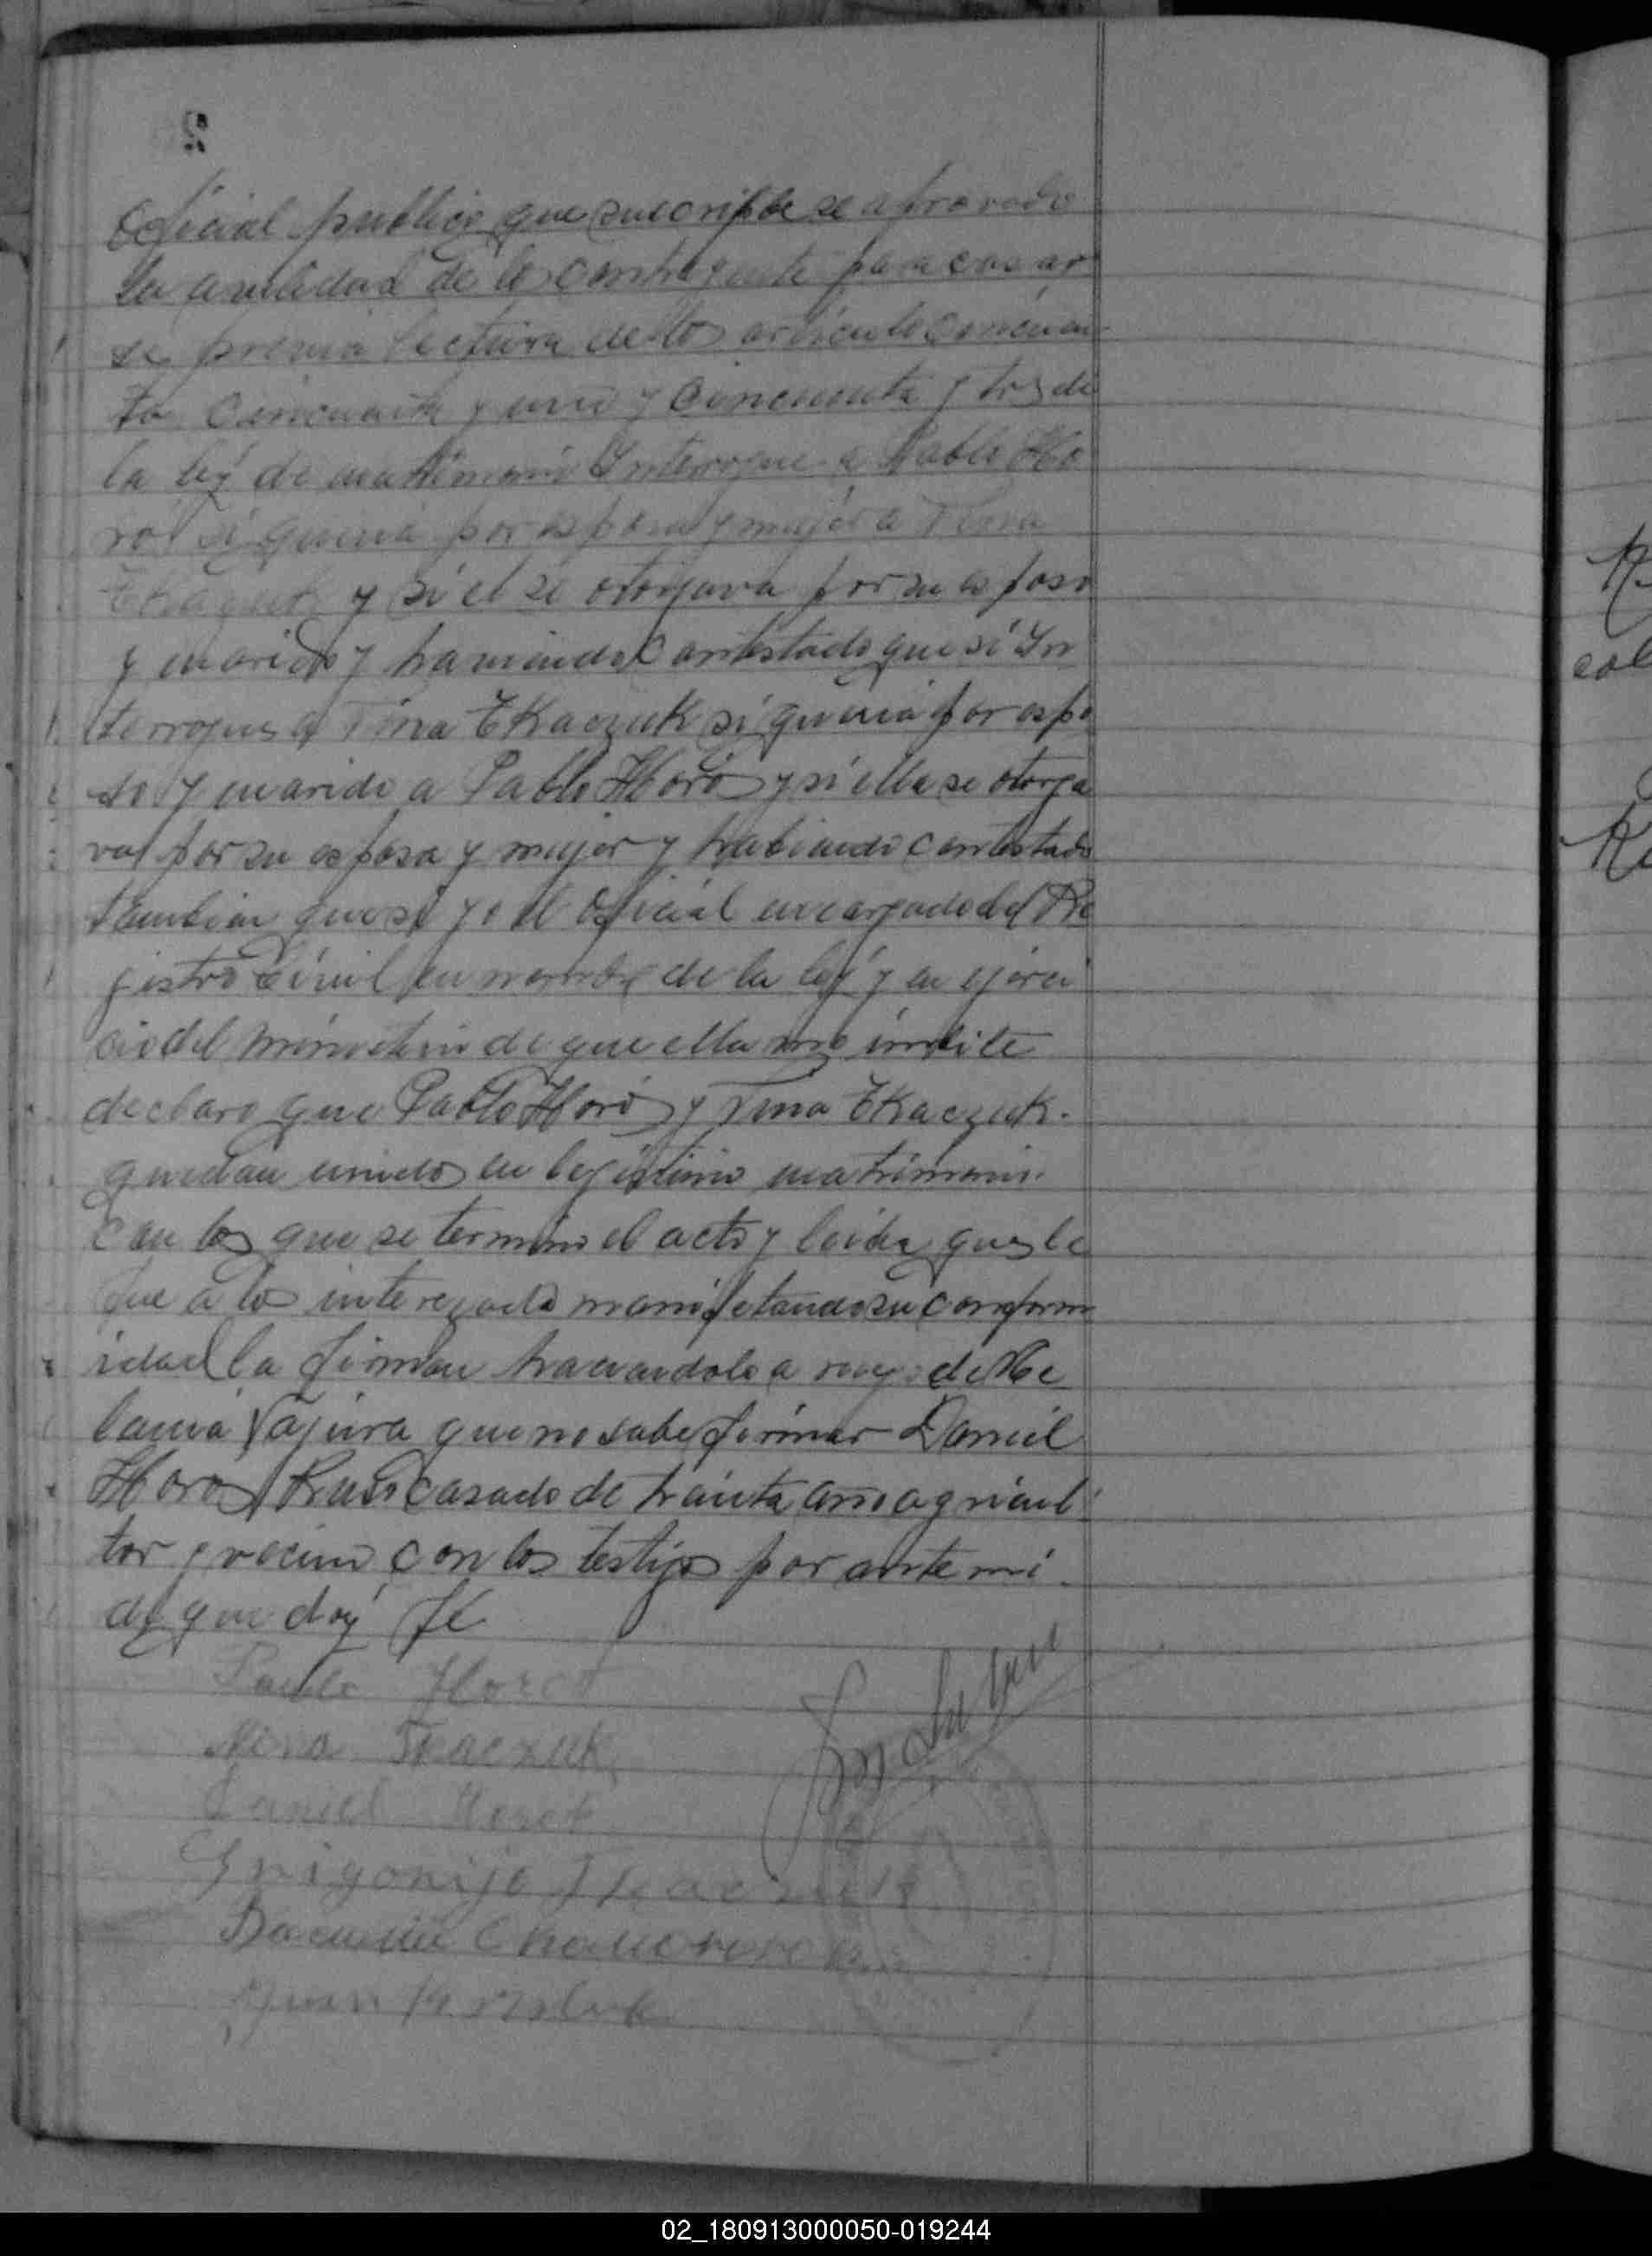 2
Oficial publico que suscripbe se aprovado
la avilidad de los contrayente para casar
se previa lectura de los articulo cincuen
ta cincuenta y uno y cincuenta y tres de
la ley de matrimonio Interrogue a Pablo Ho
ró si queria por esposa y mujer a Tina
Tkaczuk y si el se otorgava por su esposo
y marido y haviendo contestado que si In
terrogue a Tina Tkaczuk si queria por espo
so y marido a Pablo Horó y si ella se otorga
va por su esposa y mujer y habiendo contestado
tambien que si yo el Oficial encargado del Re
gistro Civil en nombre de la ley y en ejerci
cio del ministerio de que ella me imbite
declaro que Pablo Horó y Tina Tkaczuk.
quedan unidos en legitimo matrimonio.
Con los que se termino el acto y leida que le
fue a los interezados manifetando su conform
idad la firman haciendolo a ruego de Me
lania que no sabe firmar Daniel
Horó Ruso casado de treinta ano agricul
tor y vecino con los testigos por ante mi
de que doy fé
Pablo Horot
Nina Tkaczuk
Daniel Horot
Grigorije Tkaczuk
Juan
02_180913000050-019244